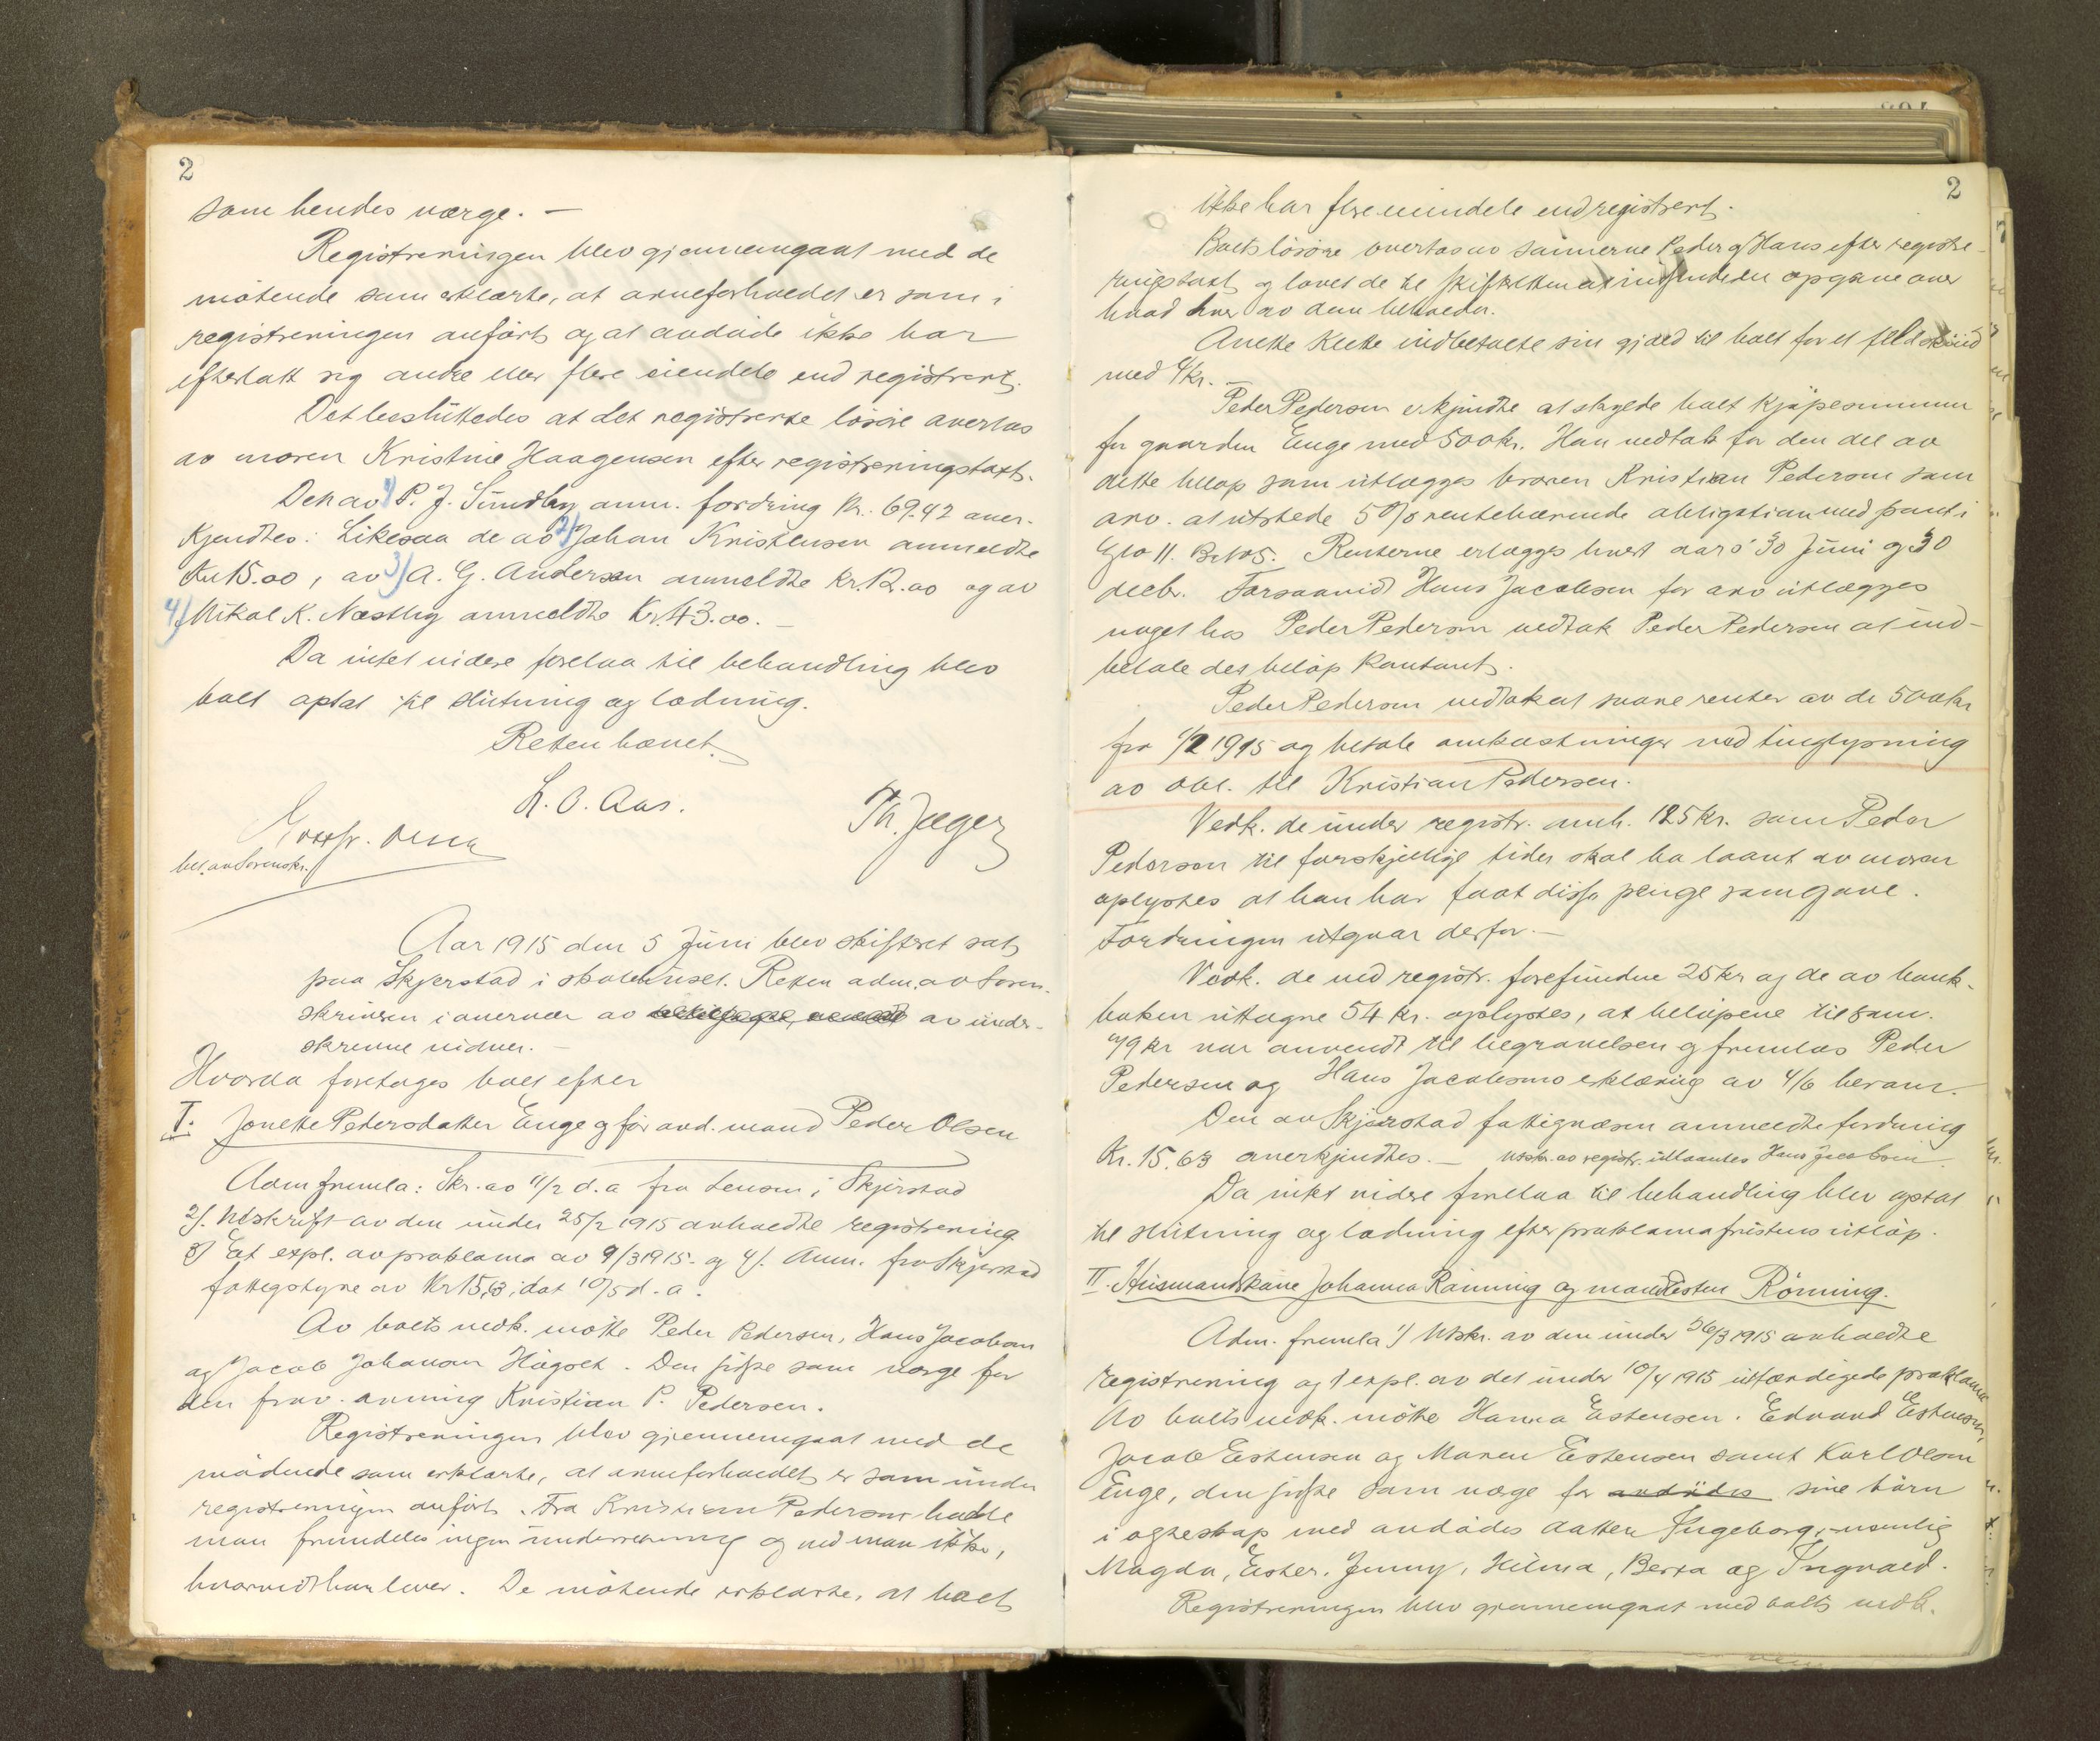 2
som hendes værge. —
Registreringen blev gjennemgaat med de
møtende som erklærte, at arveforholdet er som i
registreringen anført og at avdøde ikke har
efterlatt sig andre eller flere eiendele end registrert.
Det besluttedes at det registrerte løsøre overtas
av moren Kristine Haagensen efter registreringstakst.
Den av 1) P. J. Sundby anm. fordring kr. 69.42 aner-
kjendtes. Likesaa de av 2) Johan Kristensen anmeldte
Kr 15.00, av 3) A. G. Andersen anmeldte kr. 12.00 og av
4) Nikal K. Næstby anmeldte Kr. 43.00. —
Da intet videre forelaa til behandling blev
boet optat til slutning og lodning.
Retten hævet.
L. O. Aas.
Th. Jæger
bet. av Sorenskr.
Aar 1915 den 5 Juni blev skifteret sat
paa Skjerstad i skolehuset. Retten adm. av Soren-
skriveren i overvær av av under-
skrevne vidner. —
Hvorda foretages boet efter
I. Jonette Pedersdatter Enge og før avd. mand Peder Olsen
Adm fremla: Skr. av 11/2 d.a fra Lensm i Skjerstad
2). Utskrift av den under 25/2 1915 avholdte registrering
3) Et expl. av proklama av 9/3 1915. og 4). Anm. fra Skjerstad
fattigstyre av Kr 15,63, dat 10/5 d. a.
Av boets vedk. møtte Peder Pedersen, Hans Jacobsen
og Jacob Johansen Høgset. Den siste som værge for
den frav. arving Kristian P. Pedersen.
Registreringen blev gjennemgaat med de
mødende som erklærte, at arveforholdet er som under
registreringen anført. Fra Kristian Pedersen hadde
man fremdeles ingen underretning og ved man ikke,
hvorvidt han lever. De møtende erklærte, at boet
2
ikke har flere eiendele end registrert.
Boets løsøre overtas av sønnerne Peder og Hans efter registre-
ringstakst og lovet de til skifteretten at indsende en opgave over
hvad hver av dem beholder.
Anette Kielke indbetalte sin gjæld til boet for et
med 4 kr. —
Peder Pedersen erkjendte at skylde boet kjøpesummen
for gaarden Enge med 500 kr. Han vedtok for den del av
dette beløp som utlægges broren Kristian Pedersen som
arv. at utstede 5 % rentebærende obligation med pant i
Gno 11. Bno 5. Renterne erlægges hvert aars 30 Juni og 30
decbr. Forsaavidt Hans Jacobsen for arv utlægges
noget hos Peder Pedersen vedtok Peder Pedersen at ind-
betale det beløp kontant.
Peder Pedersen vedtok at svare renter av de 500 kr
fra 1/2 1915 og betale omkostninger ved tinglysning
av obl. til Kristian Pedersen.
Vedk. de under registr. anh. 125 kr. som Peder
Pedersen til forskjellige tider skal ha laant av moren
oplystes at han har faat disse penge som gave.
Fordringen utgaar derfor. —
Vedk. de ved registr. forefundne 25 kr og de av bank-
boken uttagne 54 kr. oplystes, at beløpene tilsam.
79 kr var anvendt til begravelsen og fremlas Peder
Pedersen og Hans Jacobsens erklæring av 4/6 herom.
Den av Skjerstad fattigvæsen anmeldte fordring
Kr. 15,63 anerkjendtes. — Utskr. av registr. utlaantes Hans Jacobsen.
Da intet videre forelaa til behandling blev optat
til slutning og lodning efter proklamafristens utløp.
II. Husmandskone Johanna Rønning og mand Esten Rønning.
Adm. fremla 1) Utskr. av den under 26/3 1915 avholdte
registrering og 1 expl. av det under 10/4 1915 utfærdigede proklama
Av boets vedk. møtte Hanna Estensen. Edvard Estensen,
Jacob Estensen og Maren Estensen samt Karl Olsen
Enge, den siste som værge for avdødes sine børn
i egteskap med avdødes datter Ingeborg, nemlig
Magda, Ester, Jenny, Hilma, Berta og Ingvald.
Registreringen blev gjennemgaat med boets vedk.